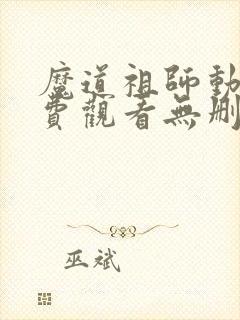 魔道祖師動
費觀看無刪
巫斌